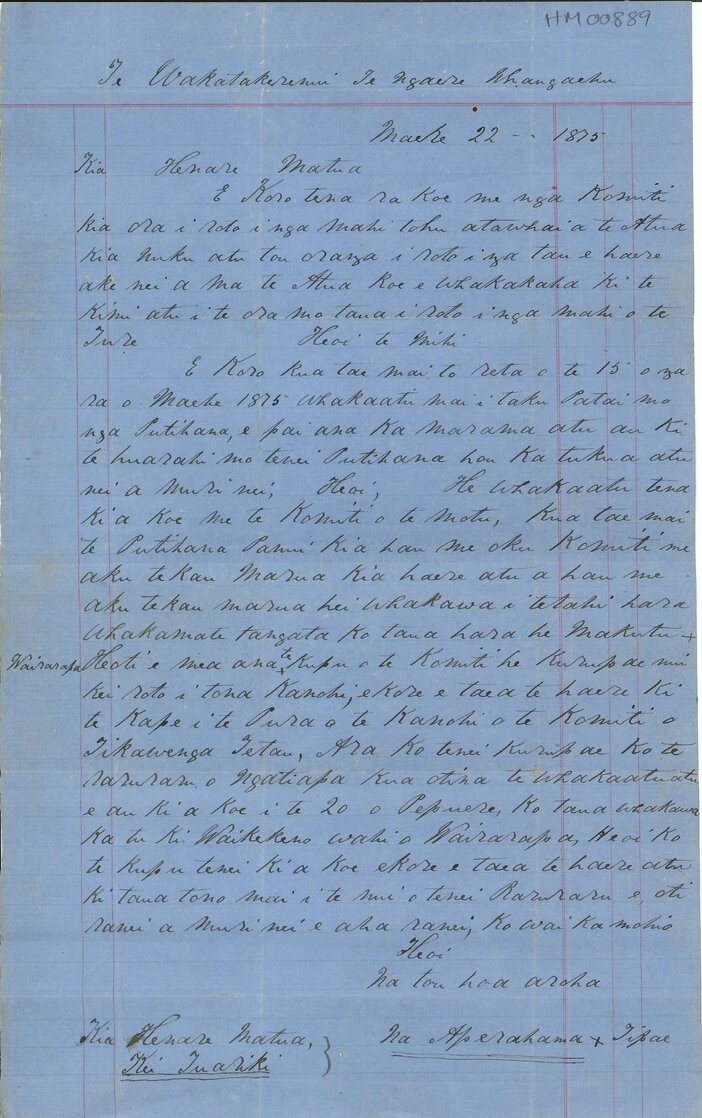 HM00889
Te Wakatakerenui Te ngaere Whangaehu
Maehe 22 -- 1875
Kia Henare Matua
E Koro tena ra koe me nga Komiti
kia ora i roto i nga mahi tohu atawhai a te Atua
Kia nuku atu tou oranga i roto i nga tau e haere
ake nei a ma te Atua Koe e whakakaha ki te
Kimi atu i te ora mo taua i roto i nga mahi o te
Ture Heoi te Mihi
E Koro kua tae mai to reta o te 15 o nga
ra o Maehe 1875 whakaatu mai i taku Patai mo
nga Putihana, e pai ana Ka marama atu au Ki
te huarahi mo tenei Putihana hou Ka tukua atu
nei a muri nei, Heoi, He whakaatu tena
ki a koe me te Komiti o te motu, Kua tae mai
te Putihana Panui Kia hau me oku Komiti me
aku tekau Marua Kia haere atu a hau me
aku tekau marua hei whakawa i tetahi hara
whakamate tangata ko taua hara he Makutu +
Wairarapa
Heoti e mea ana te Kupu o te Komiti he Kurupae nui
kei roto i tona Kanohi, ekore e taea te haere Ki
te Kape i te Pura o te Kanohi o te Komiti o
Tikawenga Tetau, Ara Ko tenei Kurupae Ko te
raruraru o Ngatiapa Kua otina te whakaatuatu
e au ki a koe i te 20 o Pepuere, Ko taua whakawa
Ka tu Ki Waikekeno wahi o Wairarapa, Heoi Ko
te Kupu tenei Ki a Koe ekore e taea te haere atu
ki taua tono mai i te nui o tenei Raruraru e, oti
ranei a muri nei e aha ranei, Ko wai Ka mohio
Heoi
Na tou hoa aroha
Kia Henare Matua, Na Aperahama + Tipae
Kei Tuariki